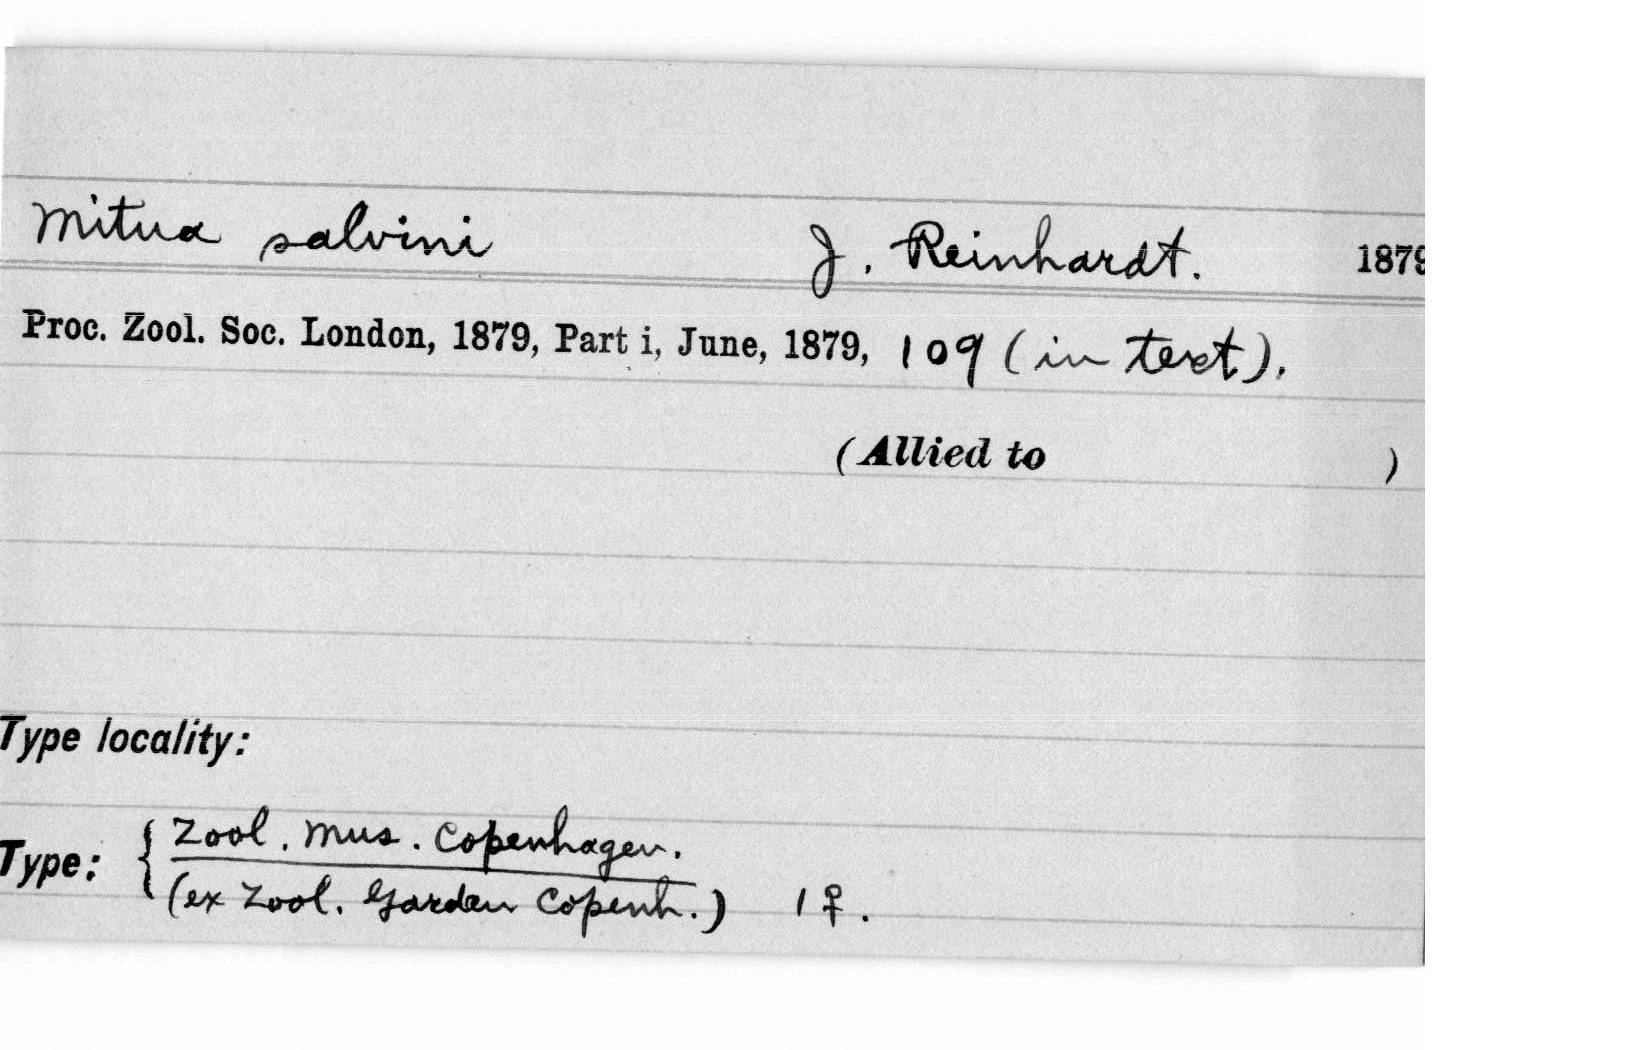 Mitua salvini J. Reinhardt. 1879
Proc. Zool. Soc. London, 1879, Part i, June, 1879, 109 (in text).
(Allied to )
Type locality:
Zool. Mus. Copenhagen.
Type: {
(ex Zool. Garden Copenh.) 1 ♀.